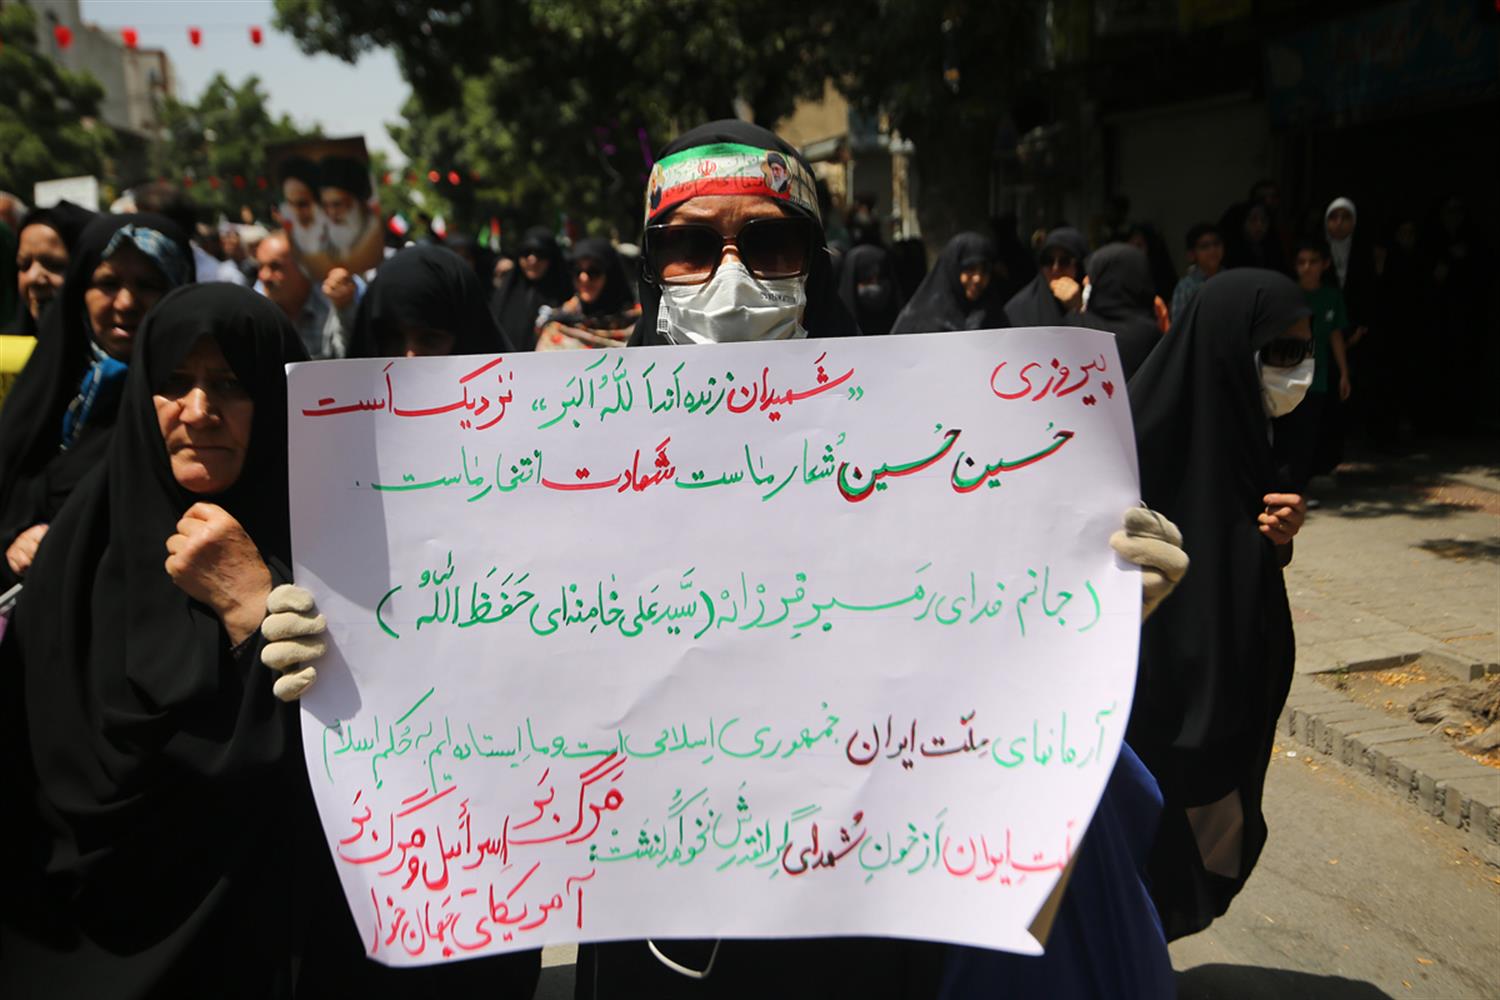 پیروزی „شهیدان زنده اَند اَللّٰهُ اَکبَر„ نزدیک اَست
حُسین حُسین شُعار ماست شَهادت افتخار ماست .
( جانم فدای رهبر فرزانه (سَیّد عَلی خامِنه‌ای حَفَظَ اللّٰه)
آرمانهای مِلّت ایران جُمهوری اِسلامی است و ما ایستاده ایم به حُکم اِسلام
ملّتِ ایران اَز خونِ شُهدای گرانقدرش نَخواهد گذشت:
مَرگ بَر اِسرائیل و مَرگ بَر
آمریکای جهان خوار